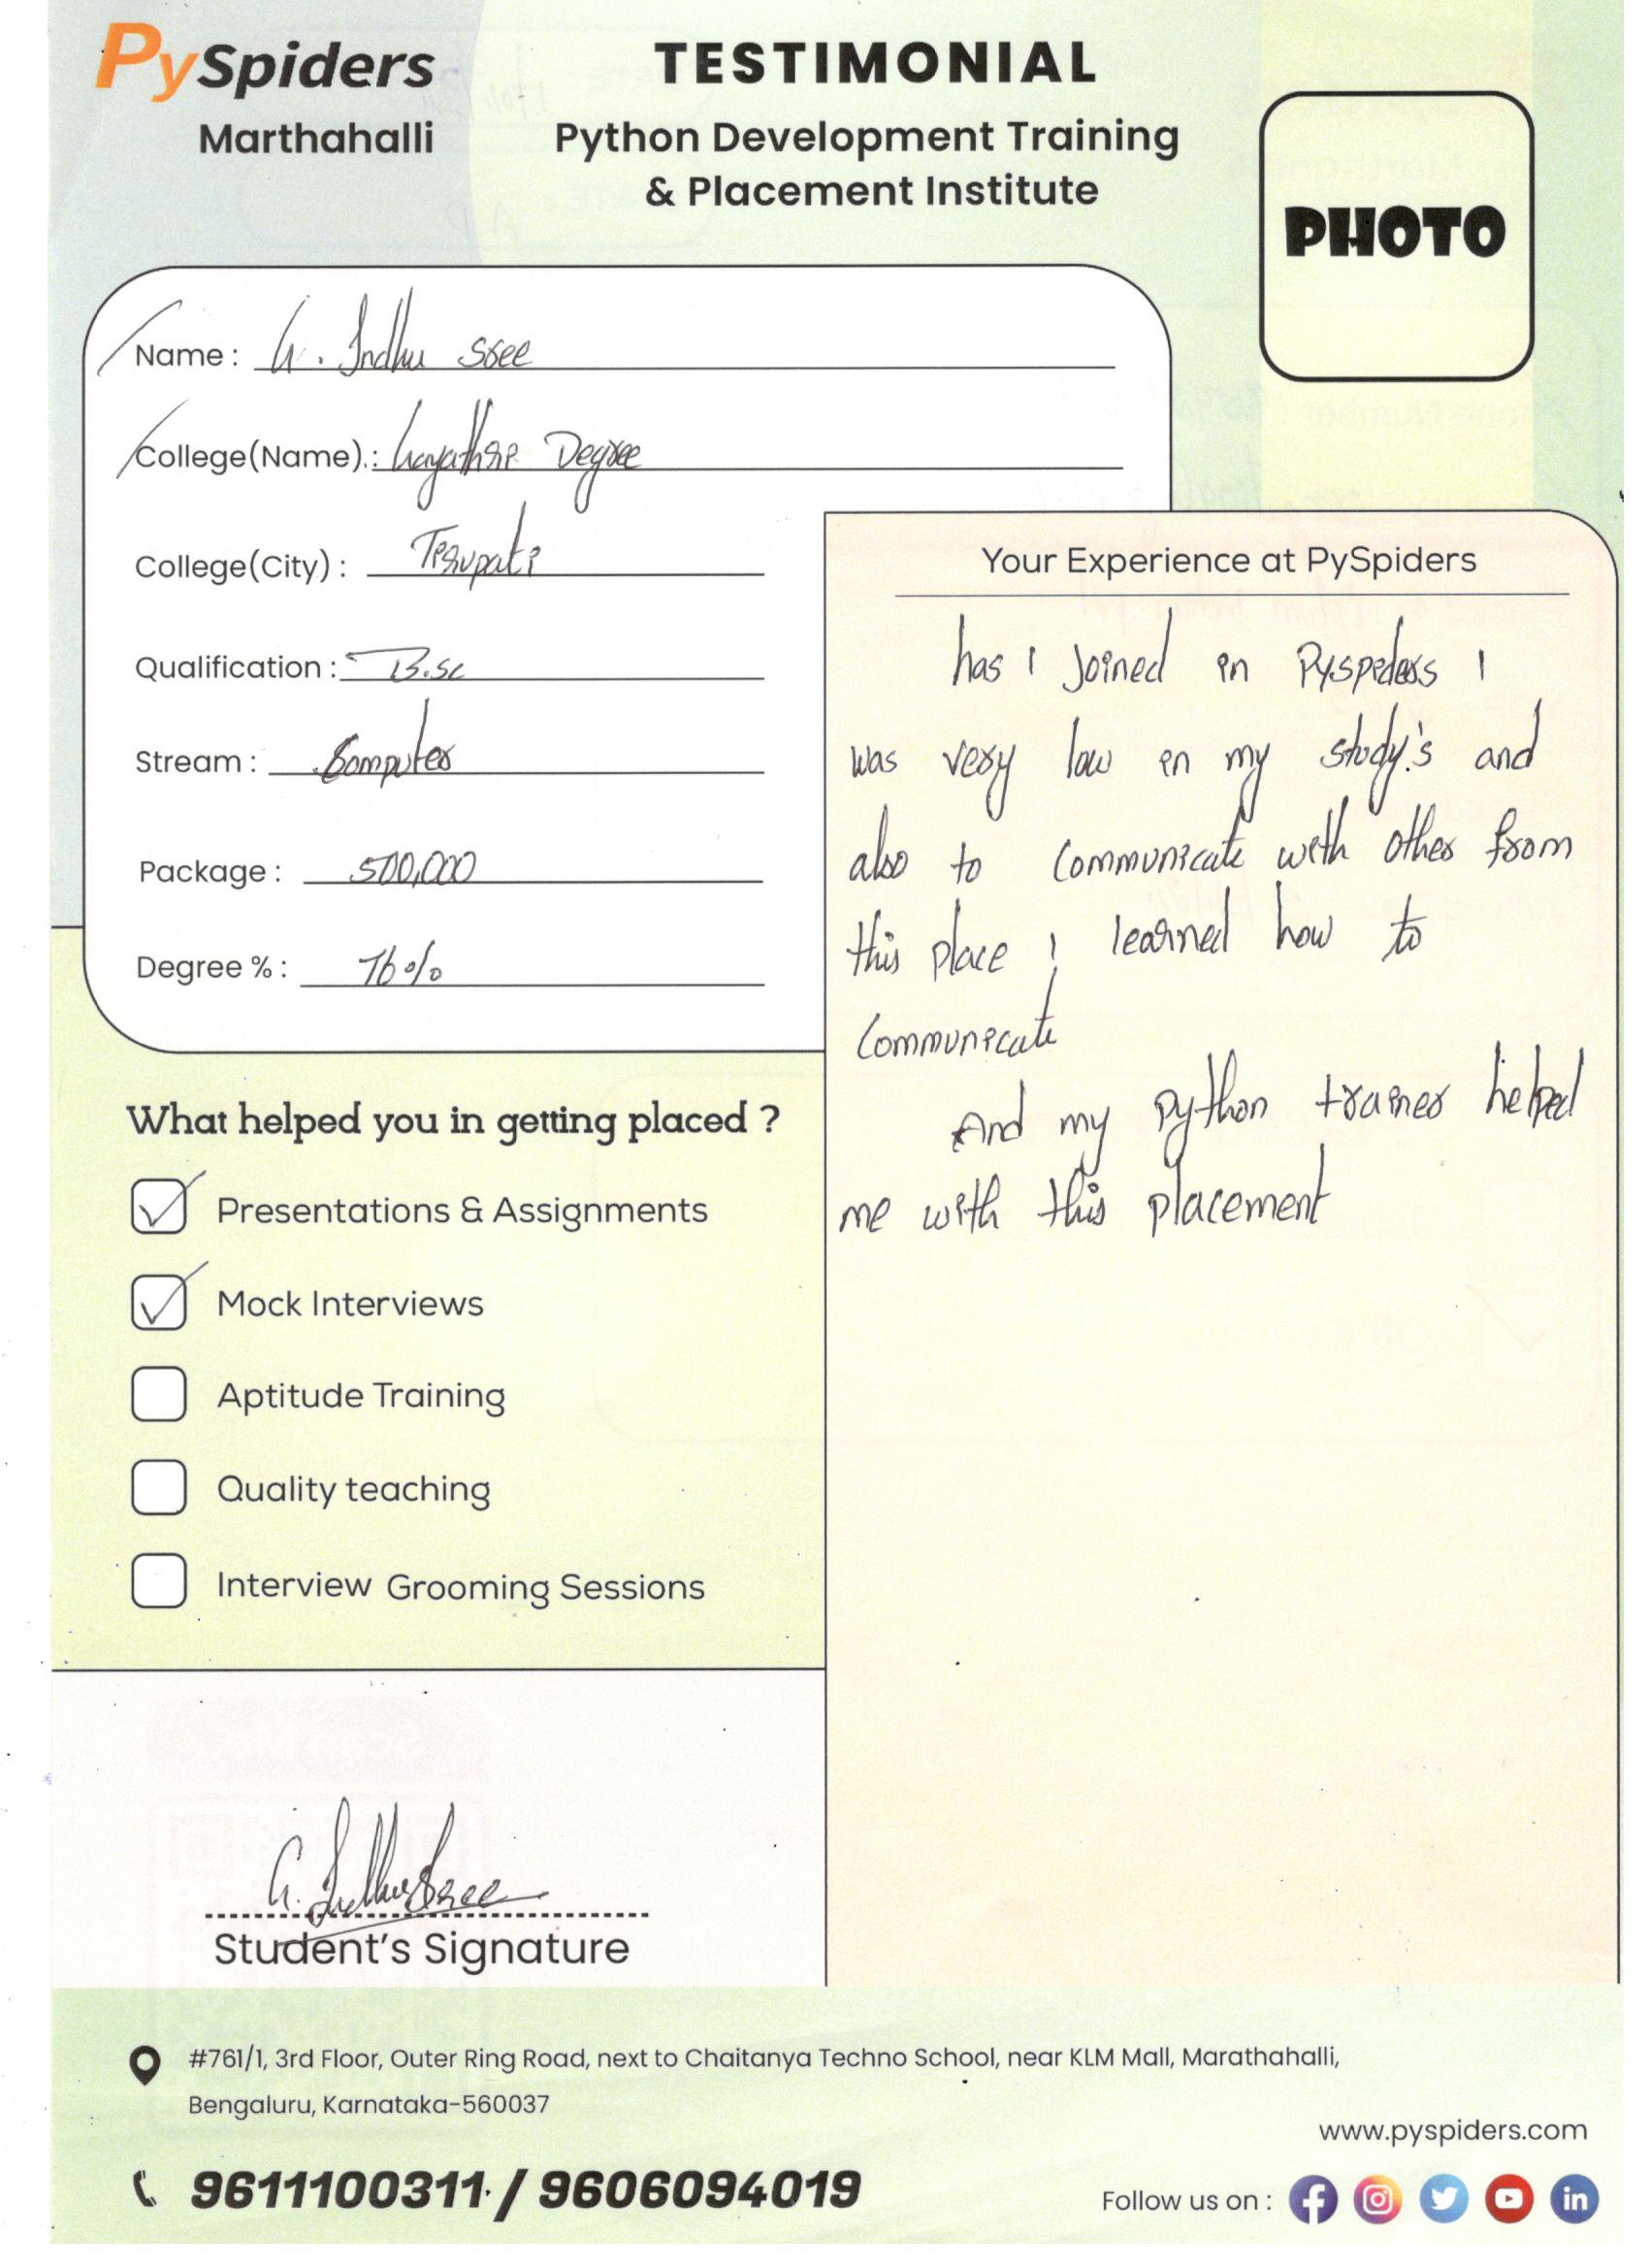 PySpiders
Marthahalli
TESTIMONIAL
Python Development Training
& Placement Institute
PHOTO
Name : G. Indhu sree
College(Name).: Gayathri Degree
College(City) : Tirupati
Qualification : B.sc
Stream : Computer
Package : 500,000
Degree % : 76%
What helped you in getting placed ?
Presentations & Assignments
Mock Interviews
Aptitude Training
Quality teaching
Interview Grooming Sessions
Your Experience at PySpiders
has I Joined in Pyspiders I
was very low in my study's and
also to Communicate with other from
this place I learned how to
Communicate
And my python trainer helped
me with this placement
G. Indhu Sree
Student's Signature
#761/1, 3rd Floor, Outer Ring Road, next to Chaitanya Techno School, near KLM Mall, Marathahalli,
Bengaluru, Karnataka-560037
www.pyspiders.com
9611100311 / 9606094019
Follow us on :